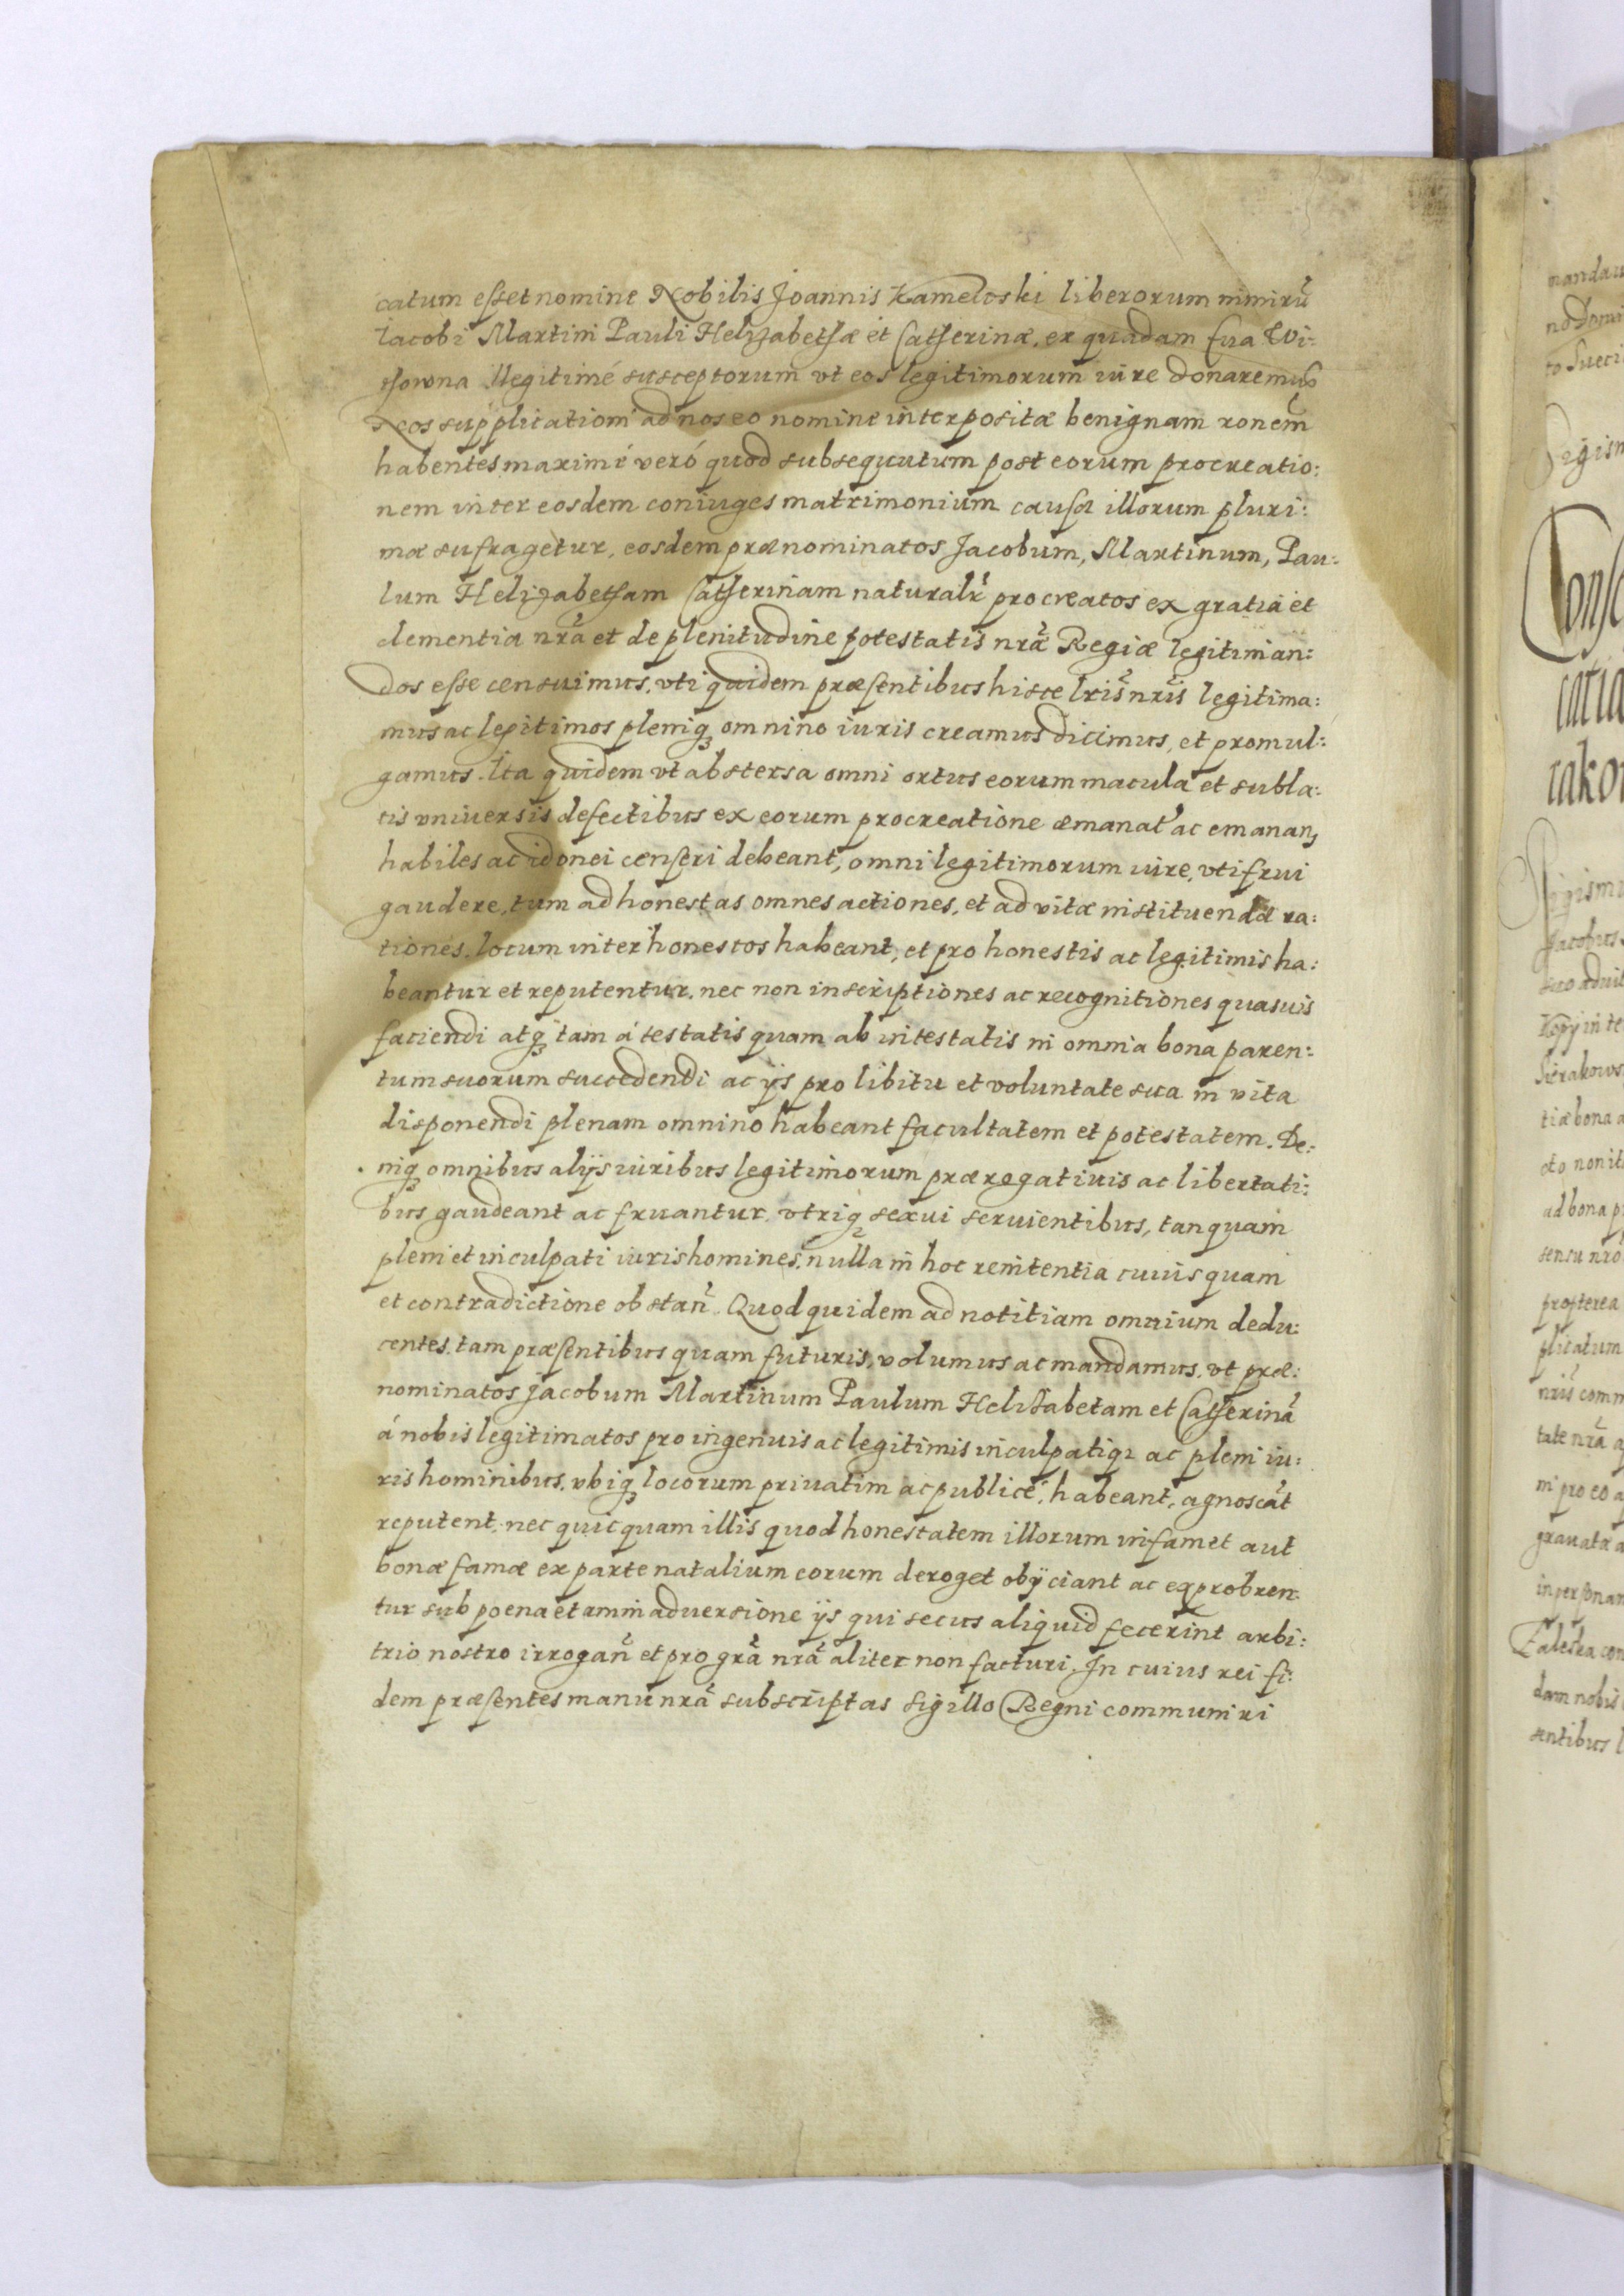 catum esset nomine Nobilis Joannis Kameloski liberorum nimirũ
Iacobi Martini Pauli Helizabethæ et Catherinæ, ex quadam sua Wi:
thowna illegitimé susceptorum vt eos legitimorum iure donaremus
Nos supplicationi ad nos eo nomine interpositæ benignam ronem̃
habentes maximé veró quod subsequutum post eorum procreatio:
nem inter eosdem coniuges matrimonium causæ illorum pluri:
mæ sufragetur, eosdem prænominatos Jacobum, Martinum, Pau:
lum Helizabetham Catherinam naturalr̃ procreatos ex gratia et
clementia nrã et de plenitudine potestatis nræ̃ Regiæ legitiman:
dos esse censuimus, vti quidem præsentibus hisce lris̃ nris̃ legitima:
mus ac legitimos pleniq omnino iuris creamus dicimus, et promul:
gamus. Ita quidem vt abstersa omni ortus eorum macula et subla:
tis vniuersis defectibus ex eorum procreatione æmanat ac emanan
habiles ac idonei censeri debeant, omni legitimorum iure, vti frui
gaudere, tum ad honestas omnes actiones, et ad vitæ instituendæ ra:
tiones, locum inter honestos habeant, et pro honestis ac legitimis ha:
beantur et reputentur, nec non inscriptiones ac recognitiones quasuis
faciendi atq tam á testatis quam ab intestatis in omnia bona paren:
tum suorum succedendi ac ijs pro libitu et voluntate sua in vita
disponendi plenam omnino habeant facultatem et potestatem. De:
niq omnibus alijs iuribus legitimorum præregatiuis ac libertati:
bus gaudeant ac fruantur, vtriq sexui seruientibus, tanquam
pleni et inculpati iuris homines, nulla in hoc renitentia cuiusquam
et contradictione obstañ. Quod quidem ad notitiam omnium dedu:
centes, tam præsentibus quam futuris, volumus ac mandamus, vt præ:
nominatos Jacobum Martinum Paulum Helizabetam et Catherinã
á nobis legitimatos pro ingenuis ac legitimis inculpatiq ac pleni iu:
ris hominibus, vbiq locorum priuatim ac publicé, habeant, agnoscãt
reputent, nec quicquam illis quod honestatem illorum infamet aut
bonæ famæ ex parte natalium eorum deroget obijciant ac exprobren
tur sub poena et animaduersione ijs qui secus aliquid fecerint arbi:
trio nostro irrogañ et pro grã nrã aliter non facturi. In cuius rei fi:
dem præsentes manu nrã subscriptas sigillo Regni communiri